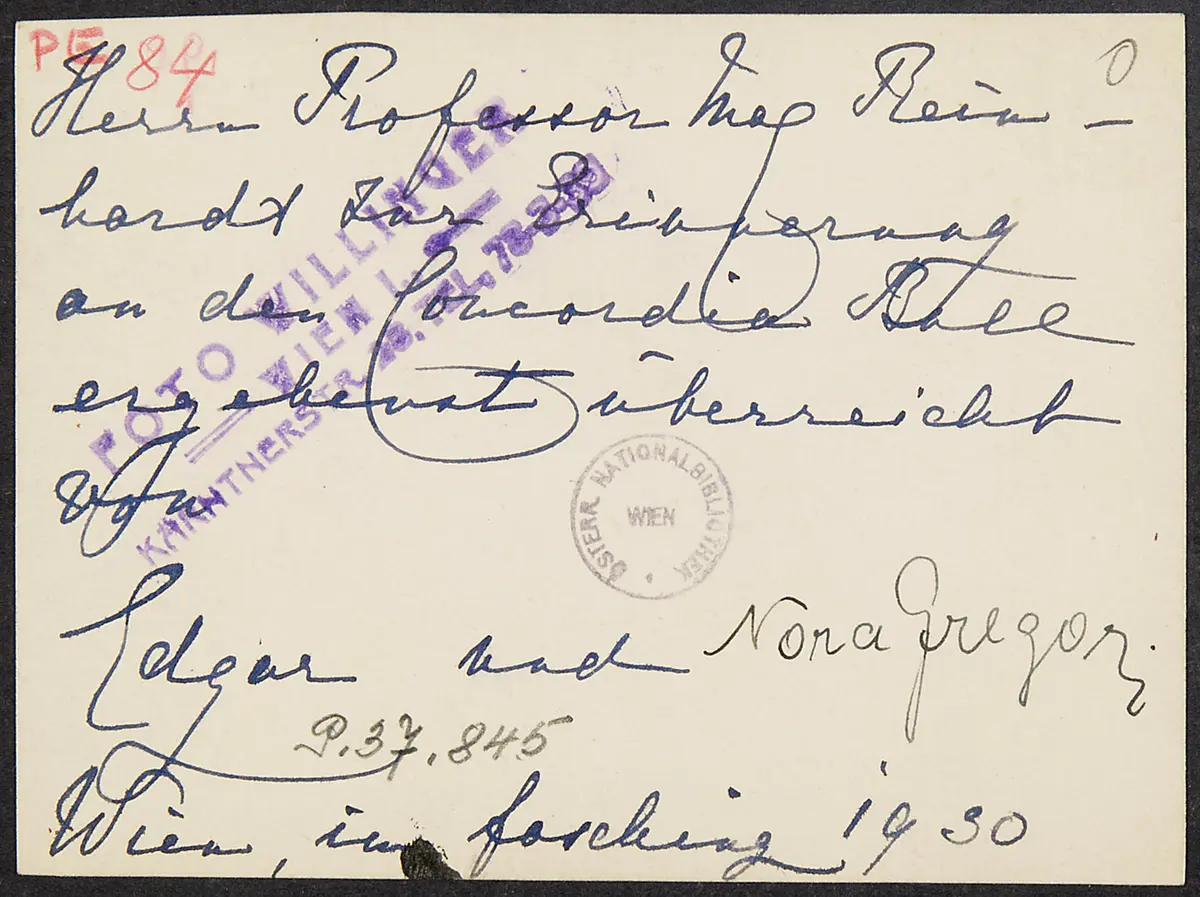 PE 84
O
Herrn Professor Max Rein-
hardt zur Erinnerung
an den Concordia Ball
ergebenst überreicht
von
Edgar und Nora Gregor.
P.37.845
Wien, im fasching 1930
FOTO WILLINGER
WIEN I.
KÄRNTNERSTR. 28. TEL. 78-
ÖSTERR. NATIONALBIBLIOTHEK
WIEN